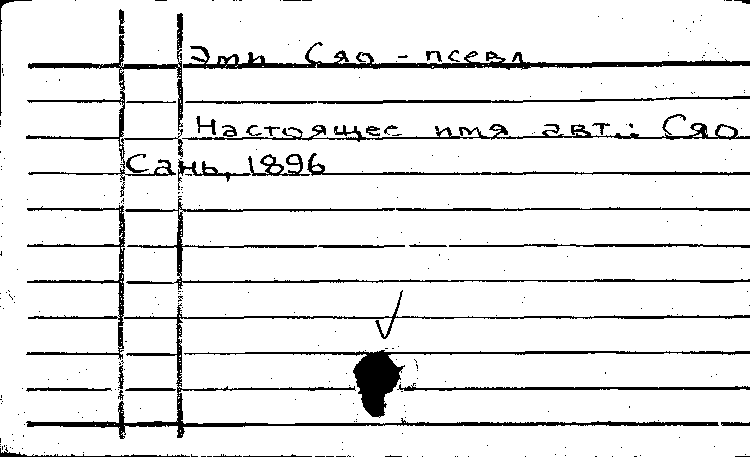 Эми Сяо - псевд
Настоящее имя авт.: Сяо
Сань, 1896